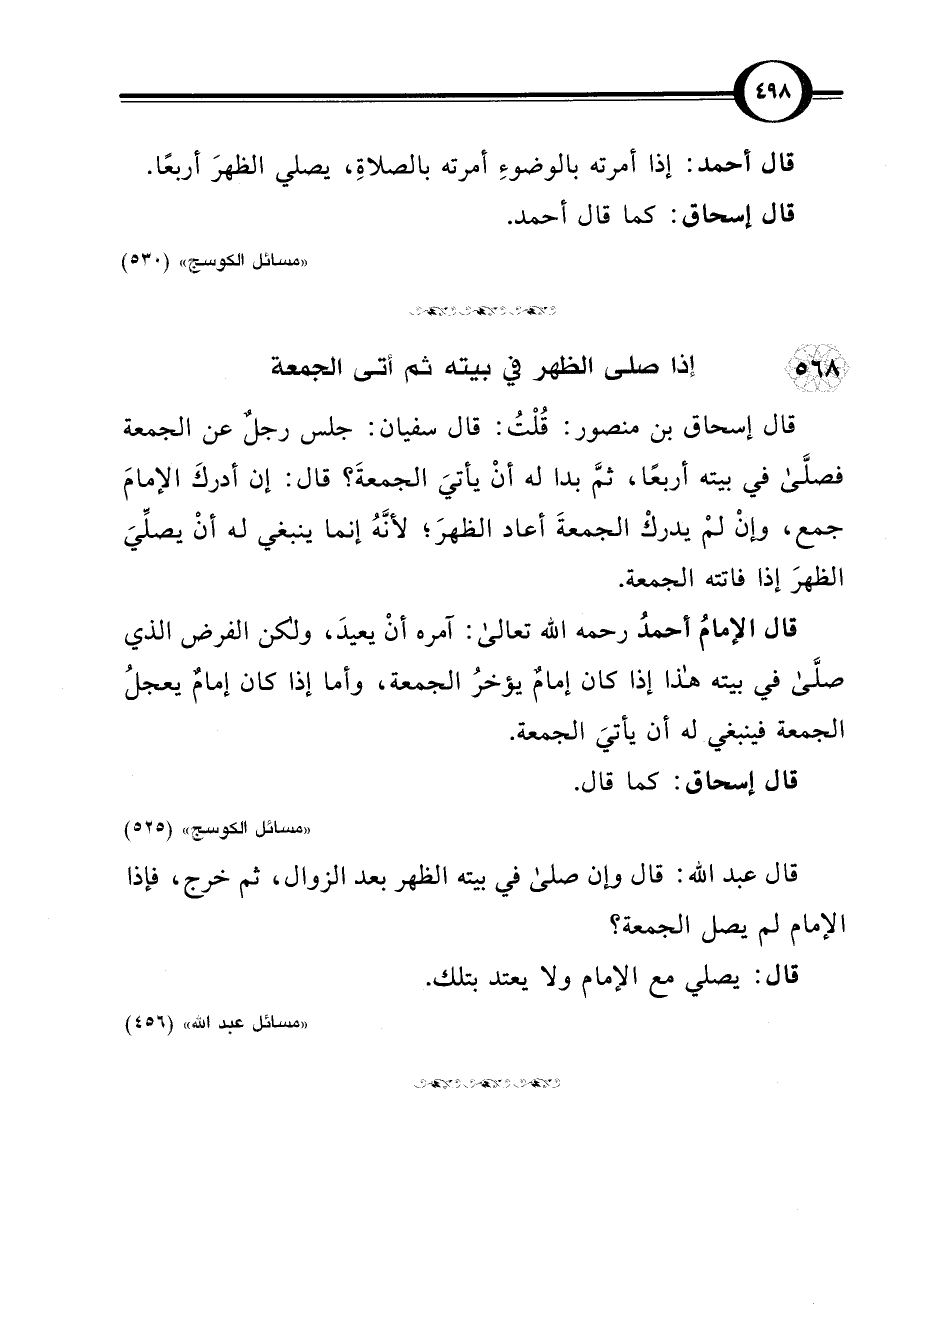 ٤٩٨
قال أحمد: إذا أمرته بالوضوءِ أمرته بالصلاةِ، يصلي الظهرَ أربعًا.
قال إسحاق: كما قال أحمد.
«مسائل الكوسج» (٥٣٠)
٥٦٨ إذا صلى الظهر في بيته ثم أتى الجمعة
قال إسحاق بن منصور: قُلْتُ: قال سفيان: جلس رجلٌ عن الجمعة
فصلَّىٰ في بيته أربعًا، ثمَّ بدا له أنْ يأتيَ الجمعةَ؟ قال: إن أدركَ الإمامَ
جمع، وإنْ لمْ يدركْ الجمعةَ أعاد الظهرَ؛ لأنَّهُ إنما ينبغي له أنْ يصلِّيَ
الظهرَ إذا فاتته الجمعة.
قال الإمامُ أحمدُ رحمه الله تعالىٰ: آمره أنْ يعيدَ، ولكن الفرض الذي
صلَّىٰ في بيته هٰذا إذا كان إمامٌ يؤخرُ الجمعة، وأما إذا كان إمامٌ يعجلُ
الجمعة فينبغي له أن يأتيَ الجمعة.
قال إسحاق: كما قال.
«مسائل الكوسج» (٥٢٥)
قال عبد الله: قال وإن صلىٰ في بيته الظهر بعد الزوال، ثم خرج، فإذا
الإمام لم يصل الجمعة؟
قال: يصلي مع الإمام ولا يعتد بتلك.
«مسائل عبد الله» (٤٥٦)